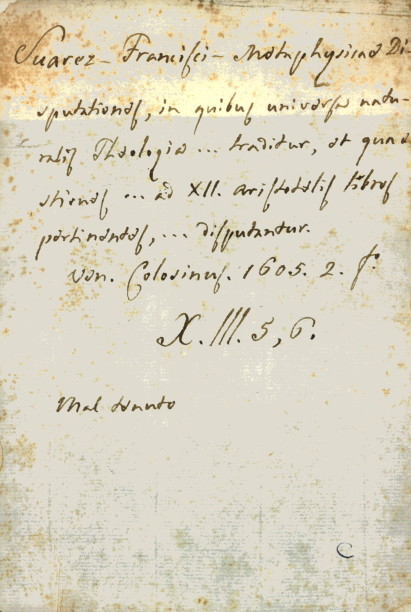 Suarez - Francisci - Metaphysicae Di-
sputationes, in quibus universa natu-
ralis Theologia ... traditur, et quae-
stiones ... ad XII. Aristotelis libros
pertinentes, ... disputantur.
Ven. Colosinus. 1605. 2. f.o
X. III. 5, 6.
Mal tenuto
C